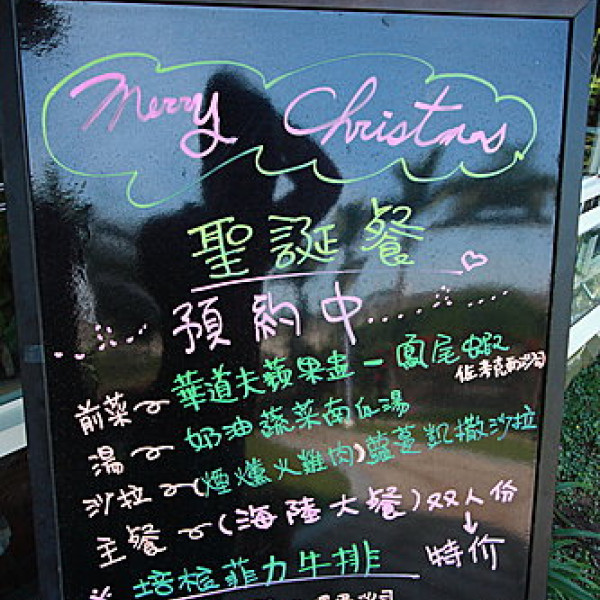 Merry Christmas
聖誕餐
預約中
前菜~華道夫蘋果盅-鳳尾蝦
湯~奶油蔬菜南瓜湯
沙拉~(煙燻火雞肉)蘿蔓凱撒沙拉
主餐~(海陸大餐)双人份
培根菲力牛排 ↓特价